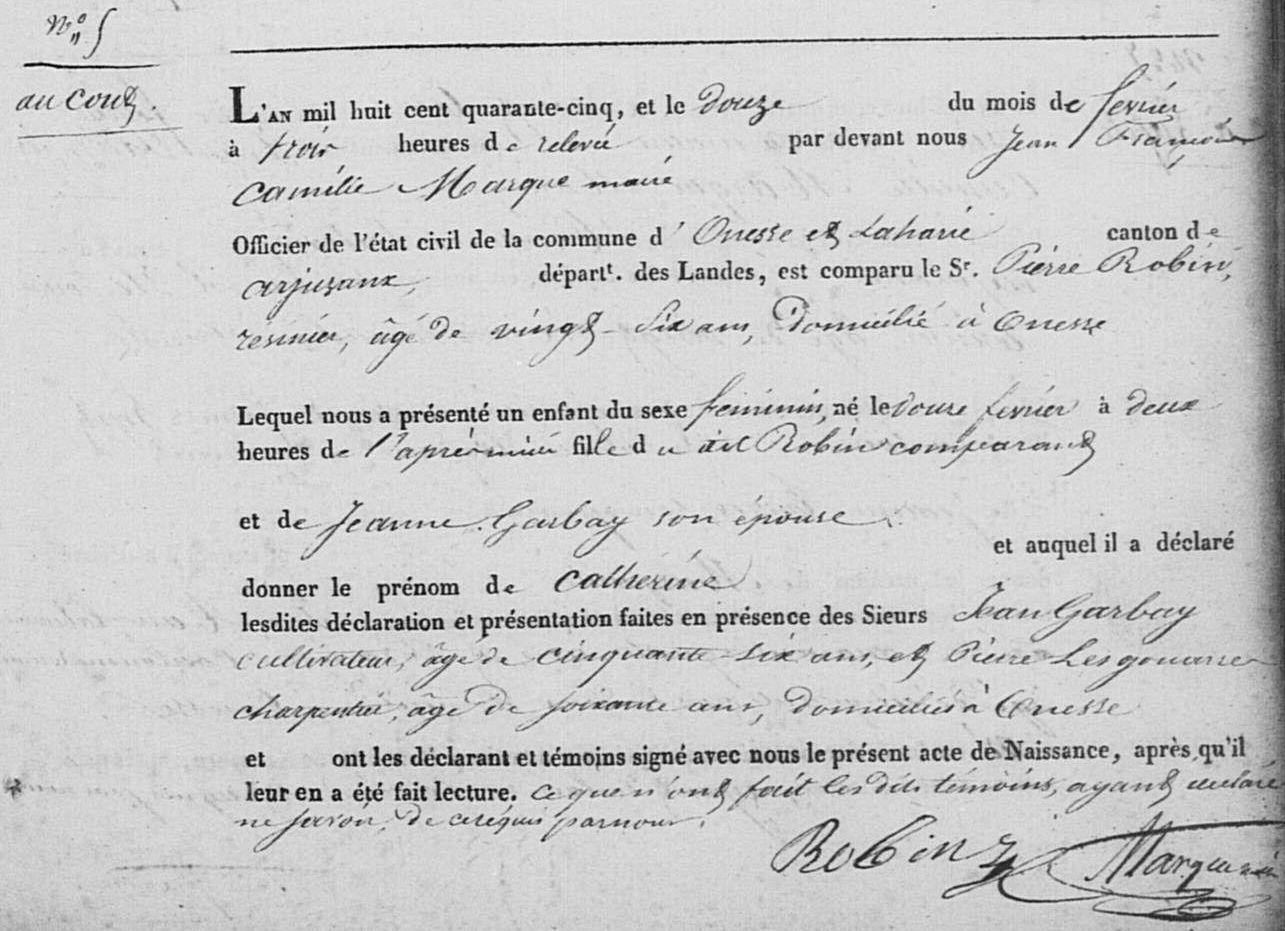 N.º 5
au Cout.
L'AN mil huit cent quarante-cinq, et le douze du mois de fevrier
à trois heures de relevée par devant nous Jean François
Camille Marque maire
Officier de l'état civil de la commune d'Onesse et Laharie canton de
arjuzanx, départt. des Landes, est comparu le Sr. Pierre Robin,
résinier, âgé de vingt-six ans, domicilié à Onesse
Lequel nous a présenté un enfant du sexe feminin, né le douze fevrier à deux
heures de l'après midi fille du dit Robin comparant
et de Jeanne Garbay son épouse.
et auquel il a déclaré
donner le prénom de Catherine
lesdites déclaration et présentation faites en présence des Sieurs Jean Garbay
cultivateur, âgé de cinquante-six ans, et Pierre Lesgourre
charpentier, âgé de soixante ans, domiciliés à Onesse
et ont les déclarant et témoins signé avec nous le présent acte de Naissance, après qu'il
leur en a été fait lecture. ce que n'ont fait les dits témoins, ayant déclaré
ne savoir, de ce requis par nous.
Robin Marque